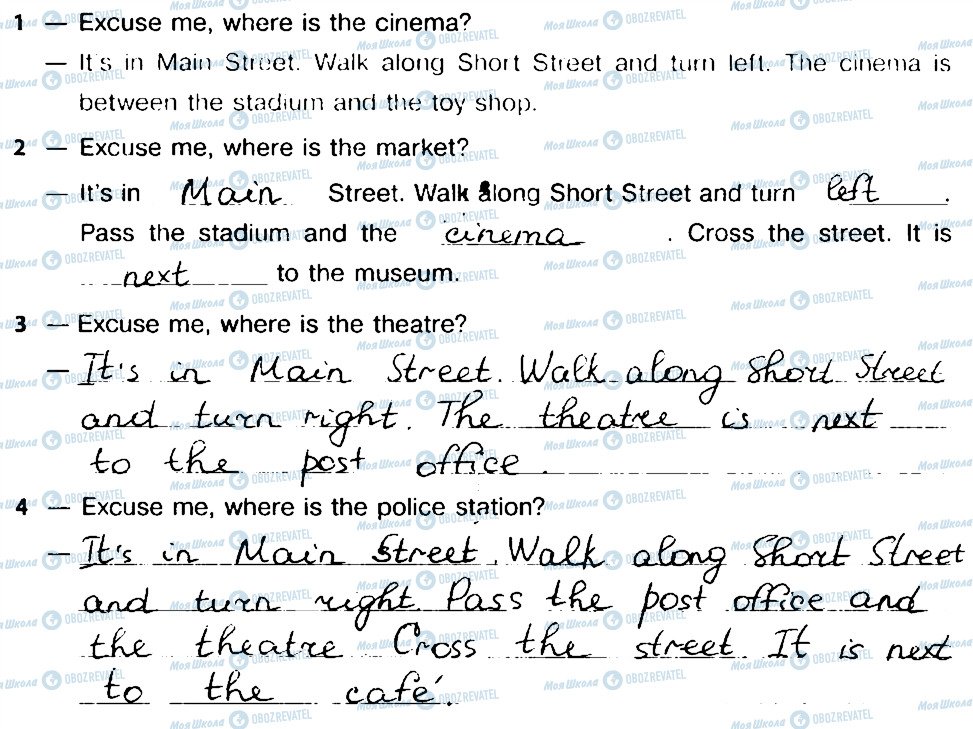 1 — Excuse me, where is the cinema?
— It's in Main Street. Walk along Short Street and turn left. The cinema is
between the stadium and the toy shop.
2 — Excuse me, where is the market?
— It's in Main Street. Walk along Short Street and turn left.
Pass the stadium and the cinema. Cross the street. It is
next to the museum.
3 — Excuse me, where is the theatre?
— It's in Main Street. Walk along Short Street
and turn right. The theatre is next
to the post office.
4 — Excuse me, where is the police station?
— It's in Main Street. Walk along Short Street
and turn right. Pass the post office and
the theatre Cross the street. It is next
to the café.